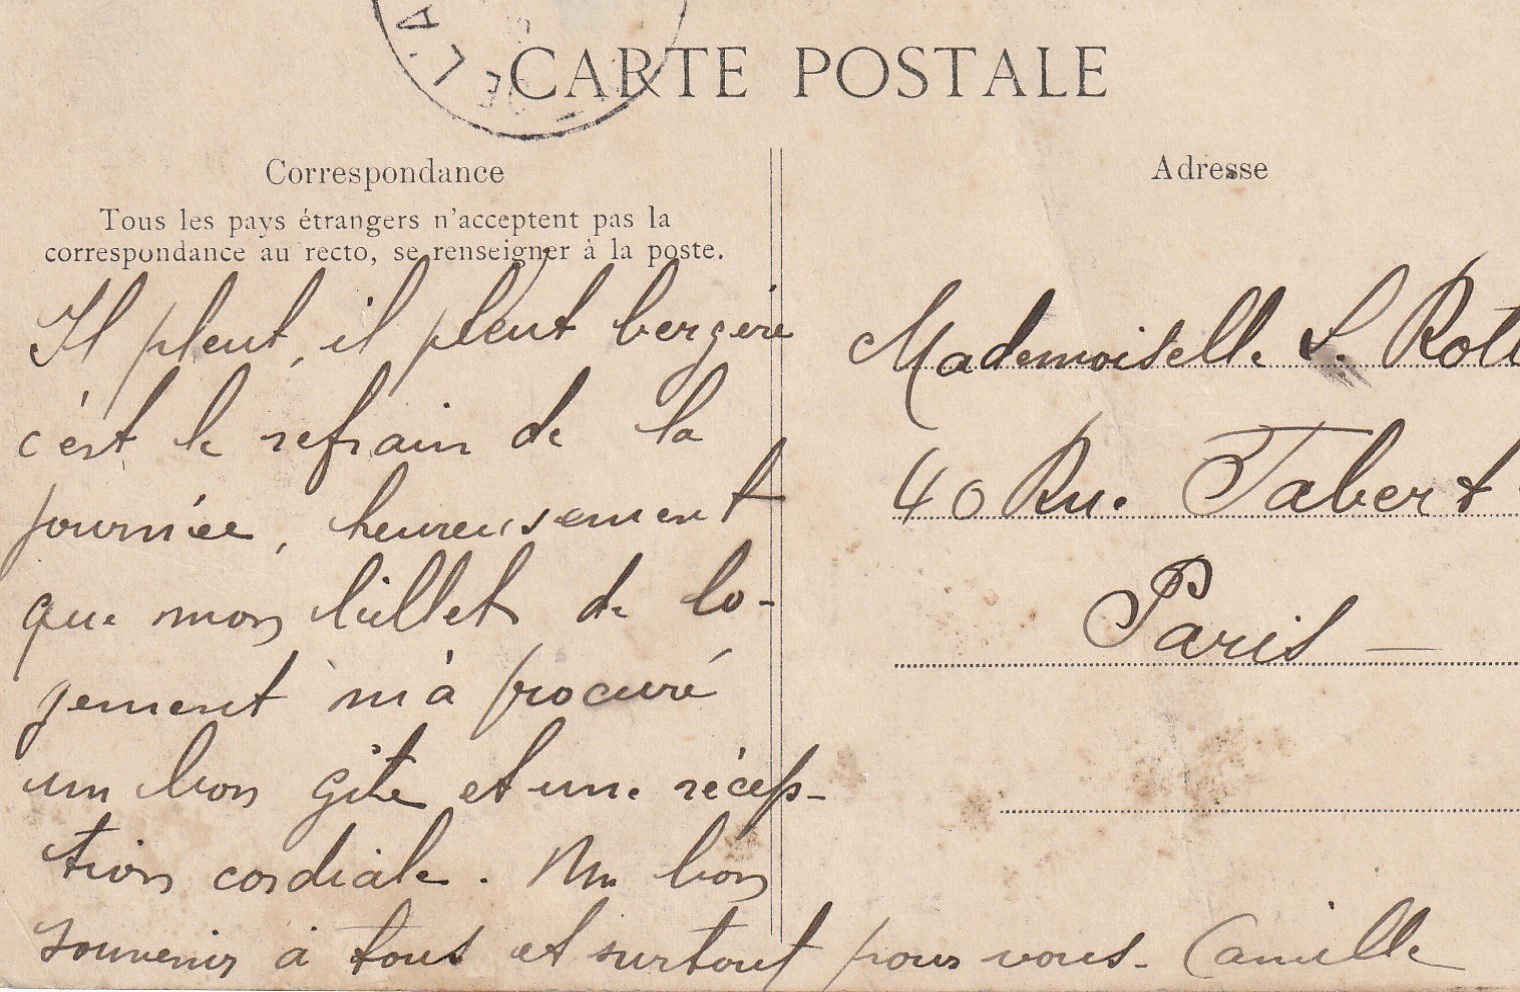 CARTE POSTALE
Correspondance
Tous les pays étrangers n'acceptent pas la
correspondance au recto, se renseigner à la poste.
Il pleut, il pleut bergère
c'est le refrain de la
journée, heureusement
que mon billet de lo-
gement m'a procuré
un bon gîte et une récep-
tion cordiale. Un bon
souvenir à tous et surtout pour vous. Camille
Adresse
Mademoiselle
40 Rue Tabert
Paris —